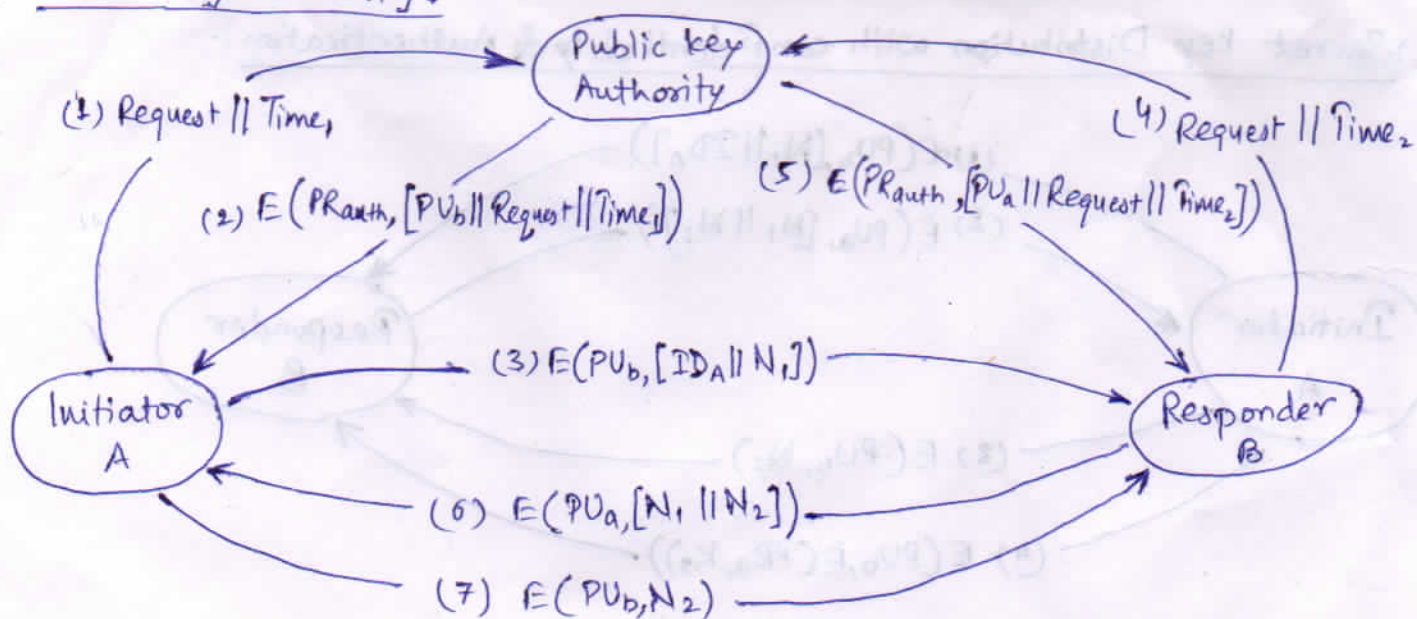 Public key
Authority
(1) Request || Time₁
(4) Request || Time₂
(2) E(PRauth, [PUb || Request || Time₁])
(5) E(PRauth, [PUa || Request || Time₂])
(3) E(PUb, [IDA || N₁])
Initiator
A
Responder
B
(6) E(PUa, [N₁ || N₂])
(7) E(PUb, N₂)